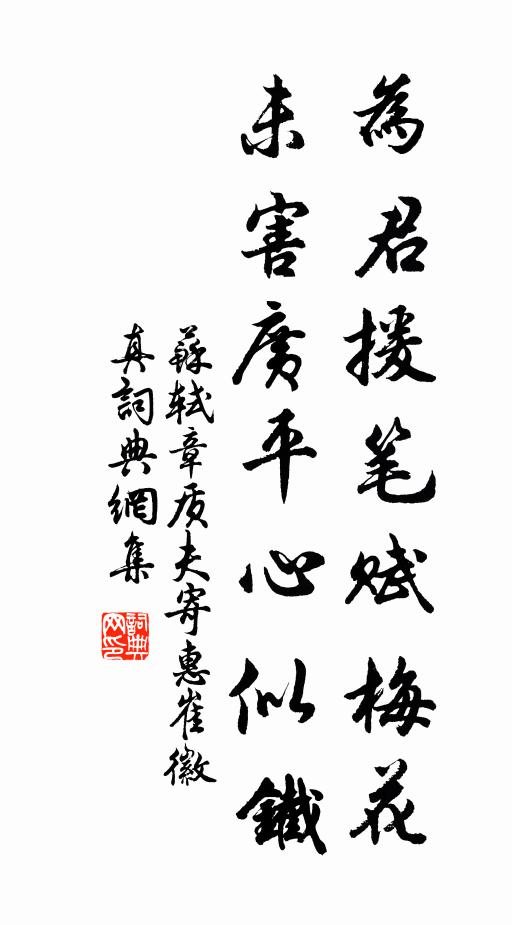 為君援笔賦梅花
未害廣平心似鐵
蘇軾章质夫寄惠崔徽
真詞典網集
詞典网印